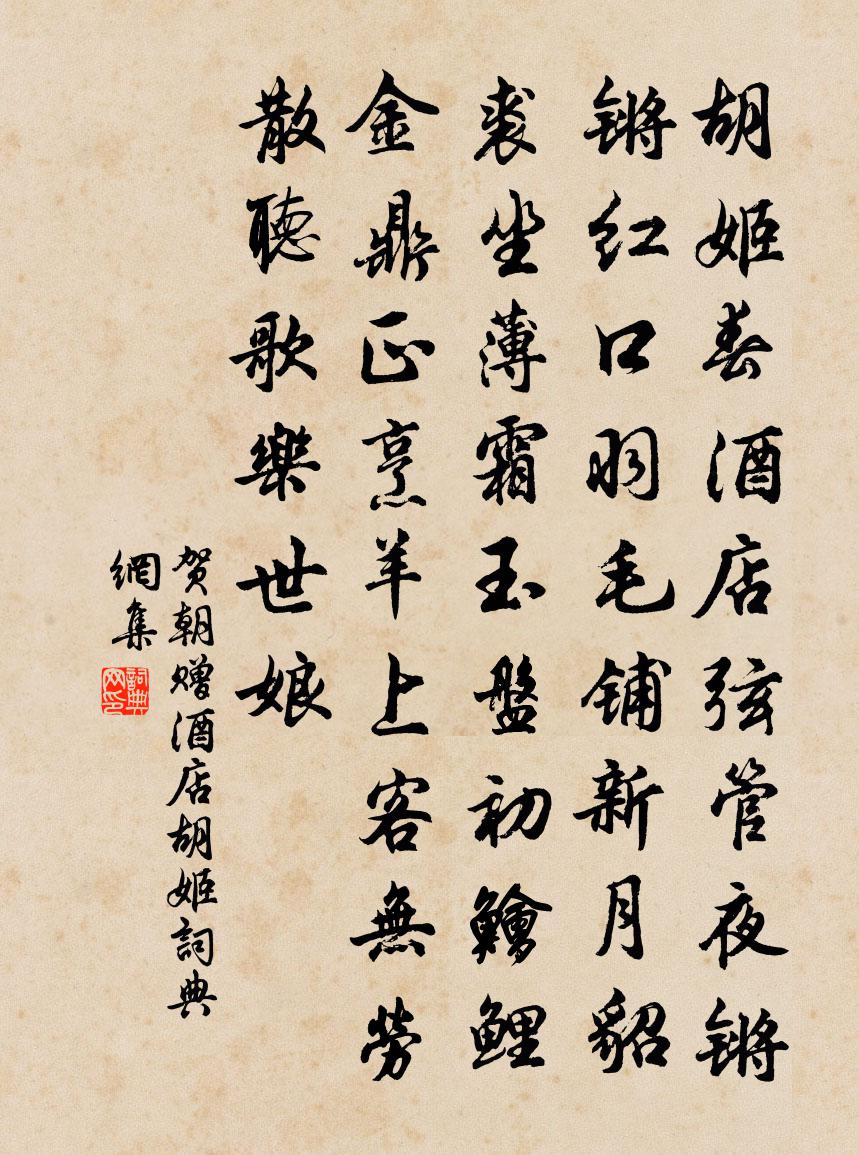 胡姬春酒店弦管夜锵
锵红口羽毛铺新月貂
裘坐薄霜玉盤初鱠鲤
金鼎正烹羊上客無勞
散聽歌樂世娘
贺朝赠酒店胡姬詞典
網集
詞典
网印